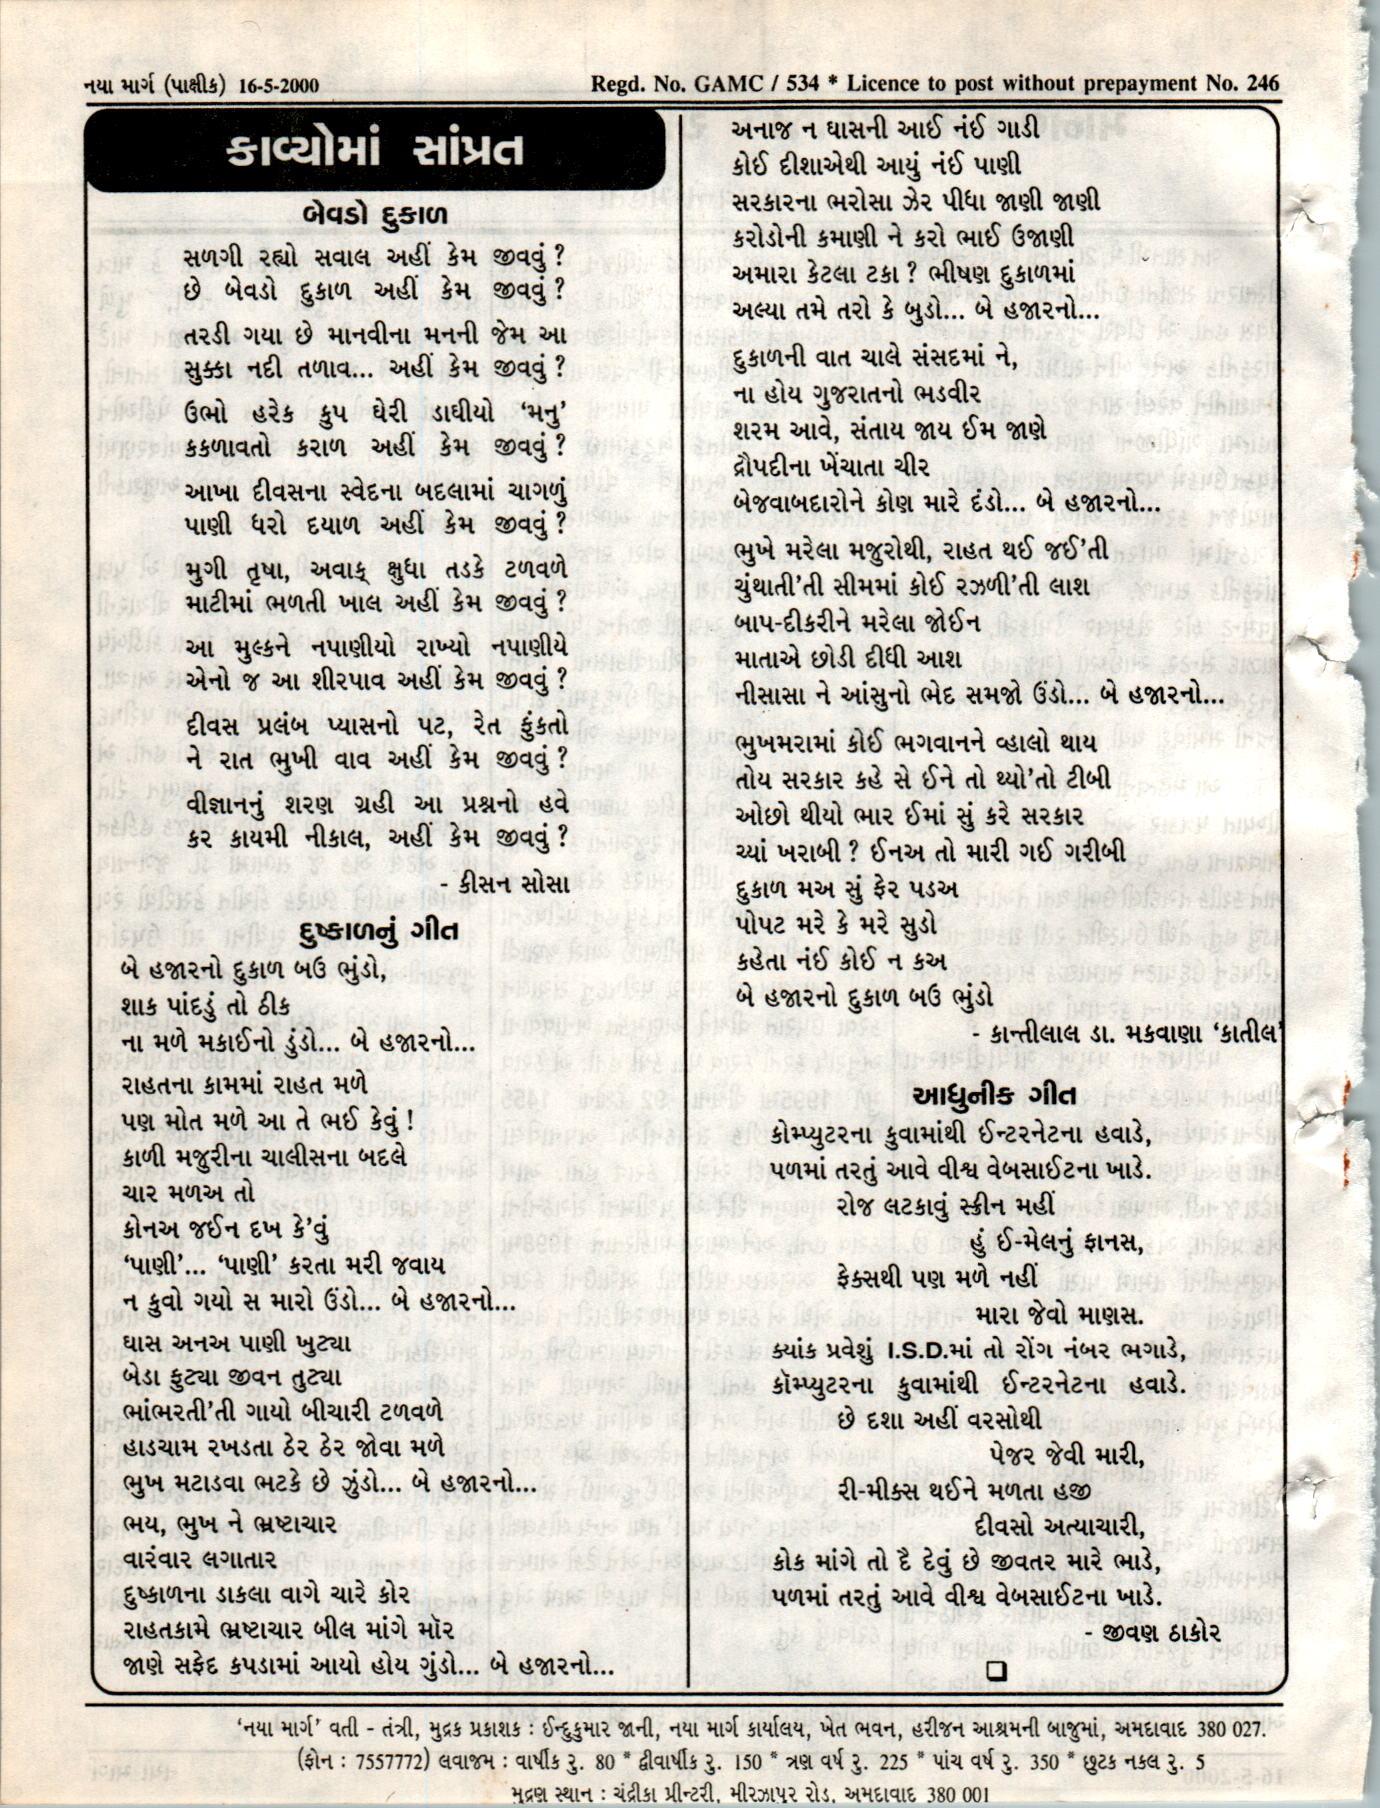 નયા માર્ગ (પાક્ષીક) 16-5-2000
Regd. No. GAMC / 534 * Licence to post without prepayment No. 246
કાવ્યોમાં સાંપ્રત
બેવડો દુકાળ
સળગી રહ્યો સવાલ અહીં કેમ જીવવું ?
છે બેવડો દુકાળ અહીં કેમ જીવવું ?
તરડી ગયા છે માનવીના મનની જેમ આ
સુક્કા નદી તળાવ... અહીં કેમ જીવવું ?
ઉભો હરેક કુપ ઘેરી ડાઘીયો ‘મનુ’
કકળાવતો કરાળ અહીં કેમ જીવવું ?
આખા દીવસના સ્વેદના બદલામાં ચાગળું
પાણી ધરો દયાળ અહીં કેમ જીવવું ?
મુગી તૃષા, અવાક્ ક્ષુધા તડકે ટળવળે
માટીમાં ભળતી ખાલ અહીં કેમ જીવવું ?
આ મુલ્કને નપાણીયો રાખ્યો નપાણીયે
એનો જ આ શીરપાવ અહીં કેમ જીવવું ?
દીવસ પ્રલંબ પ્યાસનો પટ, રેત ફુંકતો
ને રાત ભુખી વાવ અહીં કેમ જીવવું ?
વીજ્ઞાનનું શરણ ગ્રહી આ પ્રશ્નનો હવે
કર કાયમી નીકાલ, અહીં કેમ જીવવું ?
- કીસન સોસા
દુષ્કાળનું ગીત
બે હજારનો દુકાળ બઉ ભુંડો,
શાક પાંદડું તો ઠીક
ના મળે મકાઈનો ડુંડો... બે હજારનો...
રાહતના કામમાં રાહત મળે
પણ મોત મળે આ તે ભઈ કેવું !
કાળી મજુરીના ચાલીસના બદલે
ચાર મળઅ તો
કોનઅ જઈન દખ કે’વું
‘પાણી’... ‘પાણી’ કરતા મરી જવાય
ન કુવો ગયો સ મારો ઉંડો... બે હજારનો...
ઘાસ અનઅ પાણી ખુટ્યા
બેડા ફુટ્યા જીવન તુટ્યા
ભાંભરતી’તી ગાયો બીચારી ટળવળે
હાડચામ રખડતા ઠેર ઠેર જોવા મળે
ભુખ મટાડવા ભટકે છે ઝુંડો... બે હજારનો...
ભય, ભુખ ને ભ્રષ્ટાચાર
વારંવાર લગાતાર
દુષ્કાળના ડાકલા વાગે ચારે કોર
રાહતકામે ભ્રષ્ટાચાર બીલ માંગે મૉર
જાણે સફેદ કપડામાં આયો હોય ગુંડો... બે હજારનો...
અનાજ ન ઘાસની આઈ નંઈ ગાડી
કોઈ દીશાએથી આયું નંઈ પાણી
સરકારના ભરોસા ઝેર પીધા જાણી જાણી
કરોડોની કમાણી ને કરો ભાઈ ઉજાણી
અમારા કેટલા ટકા ? ભીષણ દુકાળમાં
અલ્યા તમે તરો કે બુડો... બે હજારનો...
દુકાળની વાત ચાલે સંસદમાં ને,
ના હોય ગુજરાતનો ભડવીર
શરમ આવે, સંતાય જાય ઈમ જાણે
દ્રૌપદીના ખેંચાતા ચીર
બેજવાબદારોને કોણ મારે દંડો... બે હજારનો...
ભુખે મરેલા મજુરોથી, રાહત થઈ જઈ’તી
ચુંથાતી’તી સીમમાં કોઈ રઝળી’તી લાશ
બાપ-દીકરીને મરેલા જોઈન
માતાએ છોડી દીધી આશ
નીસાસા ને આંસુનો ભેદ સમજો ઉંડો... બે હજારનો...
ભુખમરામાં કોઈ ભગવાનને વ્હાલો થાય
તોય સરકાર કહે સે ઈને તો થ્યો’તો ટીબી
ઓછો થીયો ભાર ઈમાં સું કરે સરકાર
ચ્યાં ખરાબી ? ઈનઅ તો મારી ગઈ ગરીબી
દુકાળ મઅ સું ફેર પડઅ
પોપટ મરે કે મરે સુડો
કહેતા નંઈ કોઈ ન કઅ
બે હજારનો દુકાળ બઉ ભુંડો
- કાન્તીલાલ ડા. મકવાણા ‘કાતીલ’
આધુનીક ગીત
કોમ્પ્યુટરના કુવામાંથી ઈન્ટરનેટના હવાડે,
પળમાં તરતું આવે વીશ્વ વેબસાઈટના ખાડે.
રોજ લટકાવું સ્ક્રીન મહીં
હું ઈ-મેલનું ફાનસ,
ફેક્સથી પણ મળે નહીં
મારા જેવો માણસ.
ક્યાંક પ્રવેશું I.S.D.માં તો રોંગ નંબર ભગાડે,
કૉમ્પ્યુટરના કુવામાંથી ઈન્ટરનેટના હવાડે.
છે દશા અહીં વરસોથી
પેજર જેવી મારી,
રી-મીક્સ થઈને મળતા હજી
દીવસો અત્યાચારી,
કોક માંગે તો દૈ દેવું છે જીવતર મારે ભાડે,
પળમાં તરતું આવે વીશ્વ વેબસાઈટના ખાડે.
- જીવણ ઠાકોર
‘નયા માર્ગ’ વતી - તંત્રી, મુદ્રક પ્રકાશક : ઈન્દુકુમાર જાની, નયા માર્ગ કાર્યાલય, ખેત ભવન, હરીજન આશ્રમની બાજુમાં, અમદાવાદ 380 027.
(ફોન : 7557772) લવાજમ : વાર્ષીક રુ. 80 * દ્વીવાર્ષીક રુ. 150 * ત્રણ વર્ષ રુ. 225 * પાંચ વર્ષ રુ. 350 * છુટક નકલ રુ. 5
મુદ્રણ સ્થાન : ચંદ્રીકા પ્રીન્ટરી, મીરઝાપર રોડ, અમદાવાદ 380 001